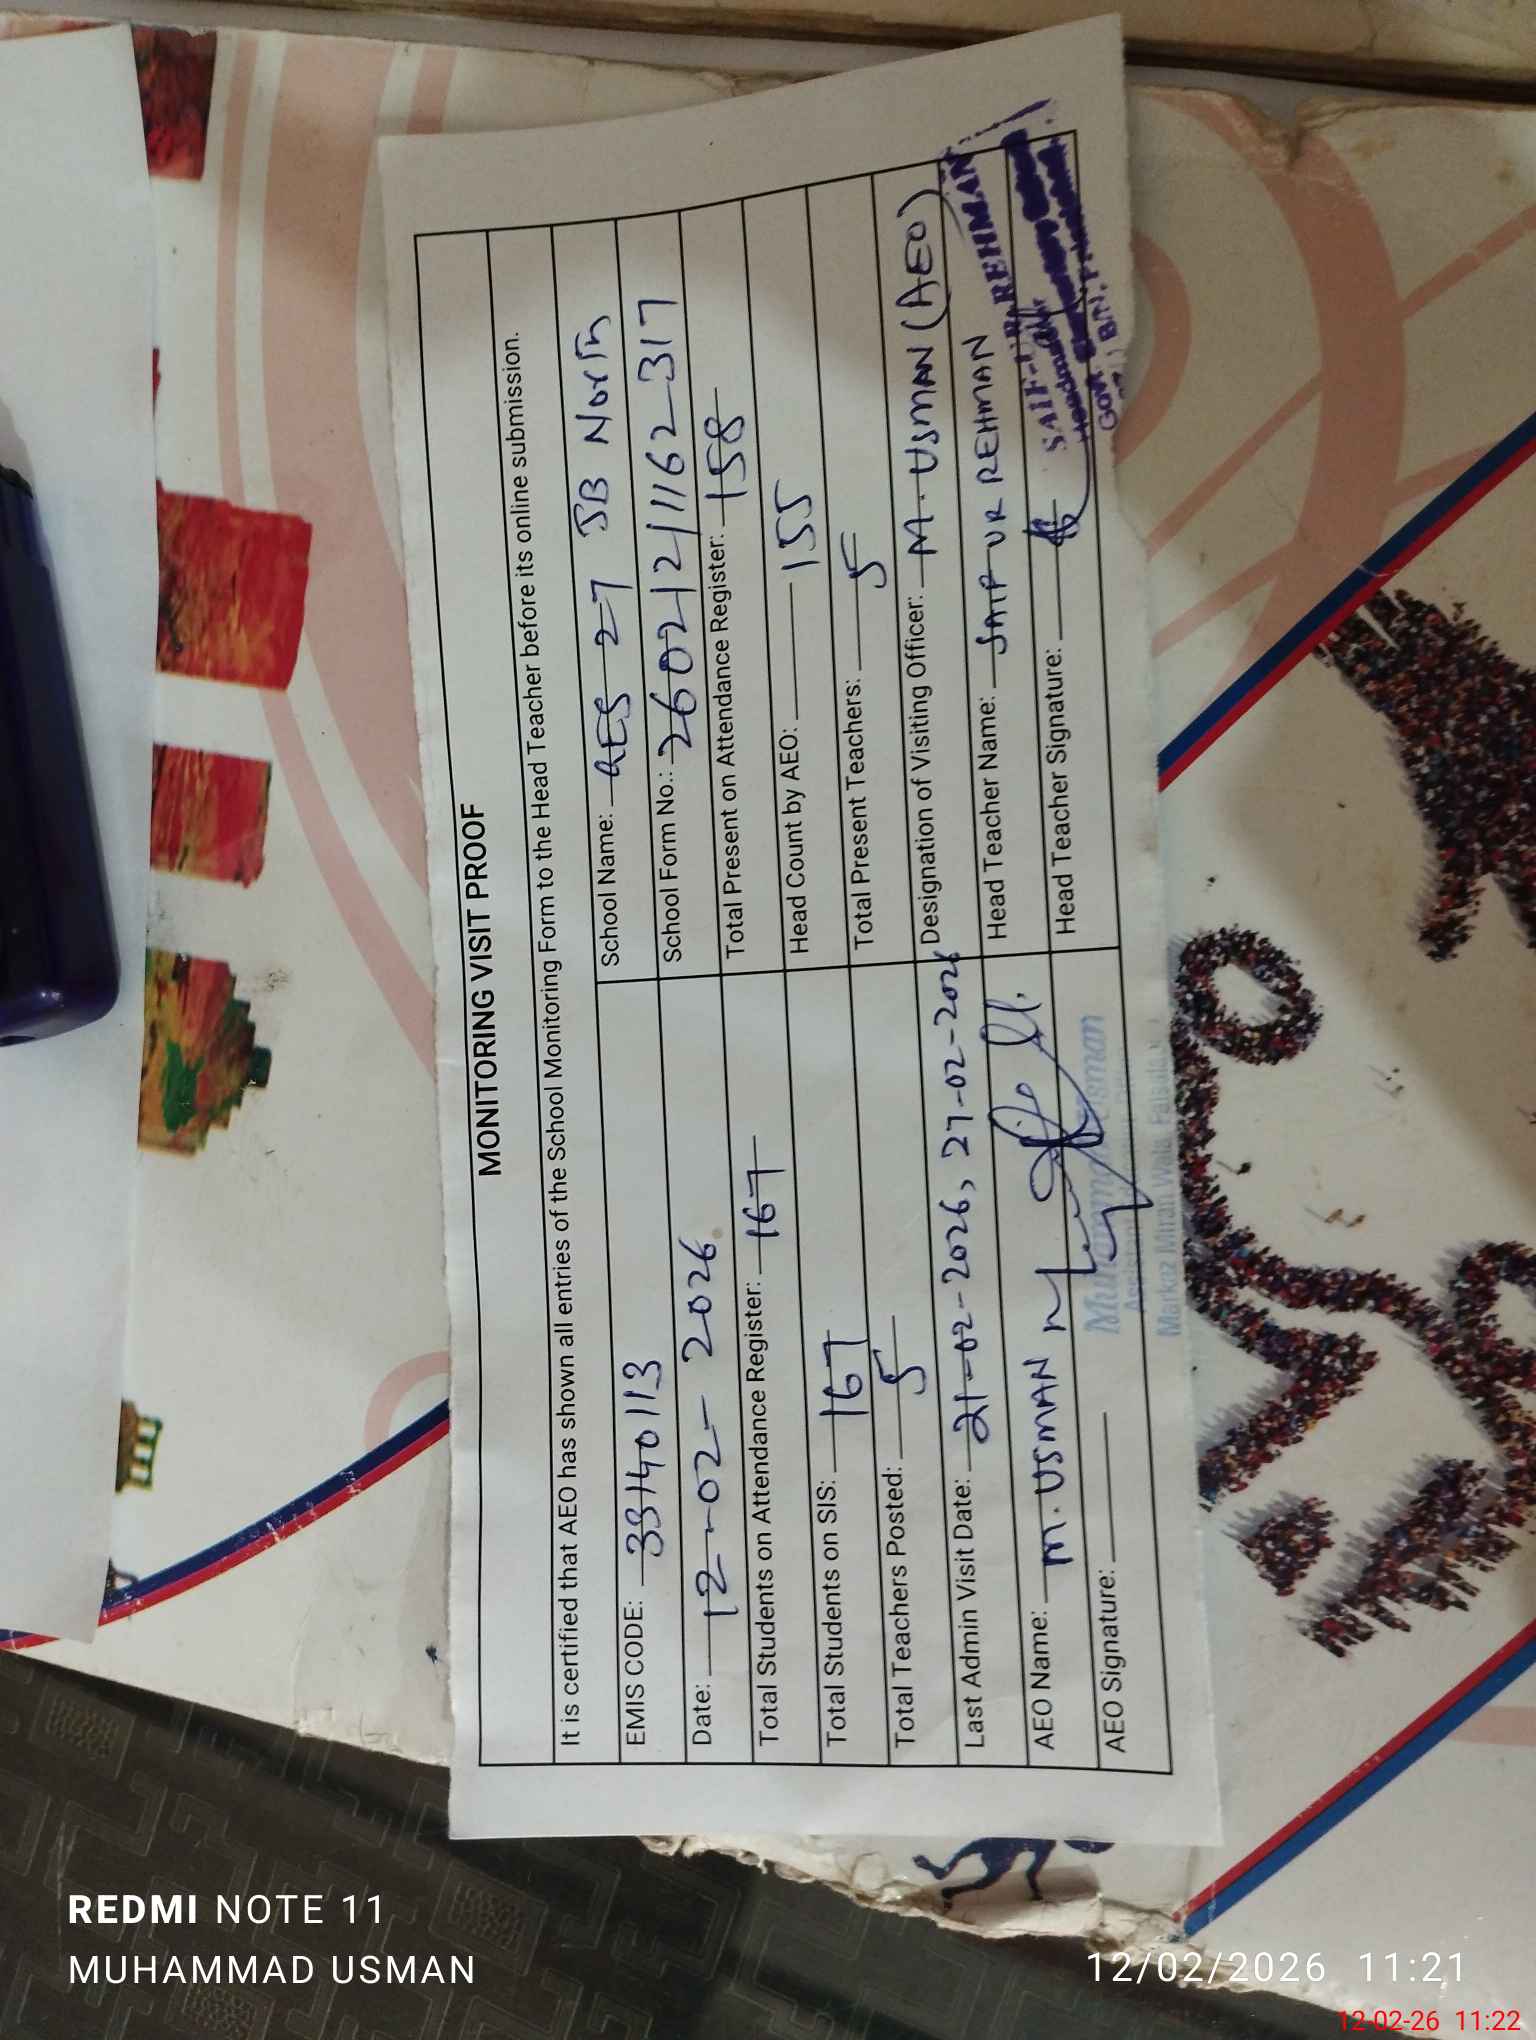 MONITORING VISIT PROOF
It is certified that AEO has shown all entries of the School Monitoring Form to the Head Teacher before its online submission.
EMIS CODE: 33140113
School Name: GES 27 JB North
Date: 12-02-2026
School Form No.: 260212/1162_317
Total Students on Attendance Register: 167
Total Present on Attendance Register: 158
Total Students on SIS: 167
Head Count by AEO: 155
Total Teachers Posted: 5
Total Present Teachers: 5
Last Admin Visit Date: 21-02-2026, 27-02-2026
Designation of Visiting Officer: M. USMAN (AEO)
AEO Name: M. USMAN
Head Teacher Name: SAIF UR REHMAN
AEO Signature:
Head Teacher Signature:
SAIF-UR-REHMAN
Muhammad Usman
Markaz Miran Wala, Faisalabad
REDMI NOTE 11
MUHAMMAD USMAN
12/02/2026 11:21
12-02-26 11:22